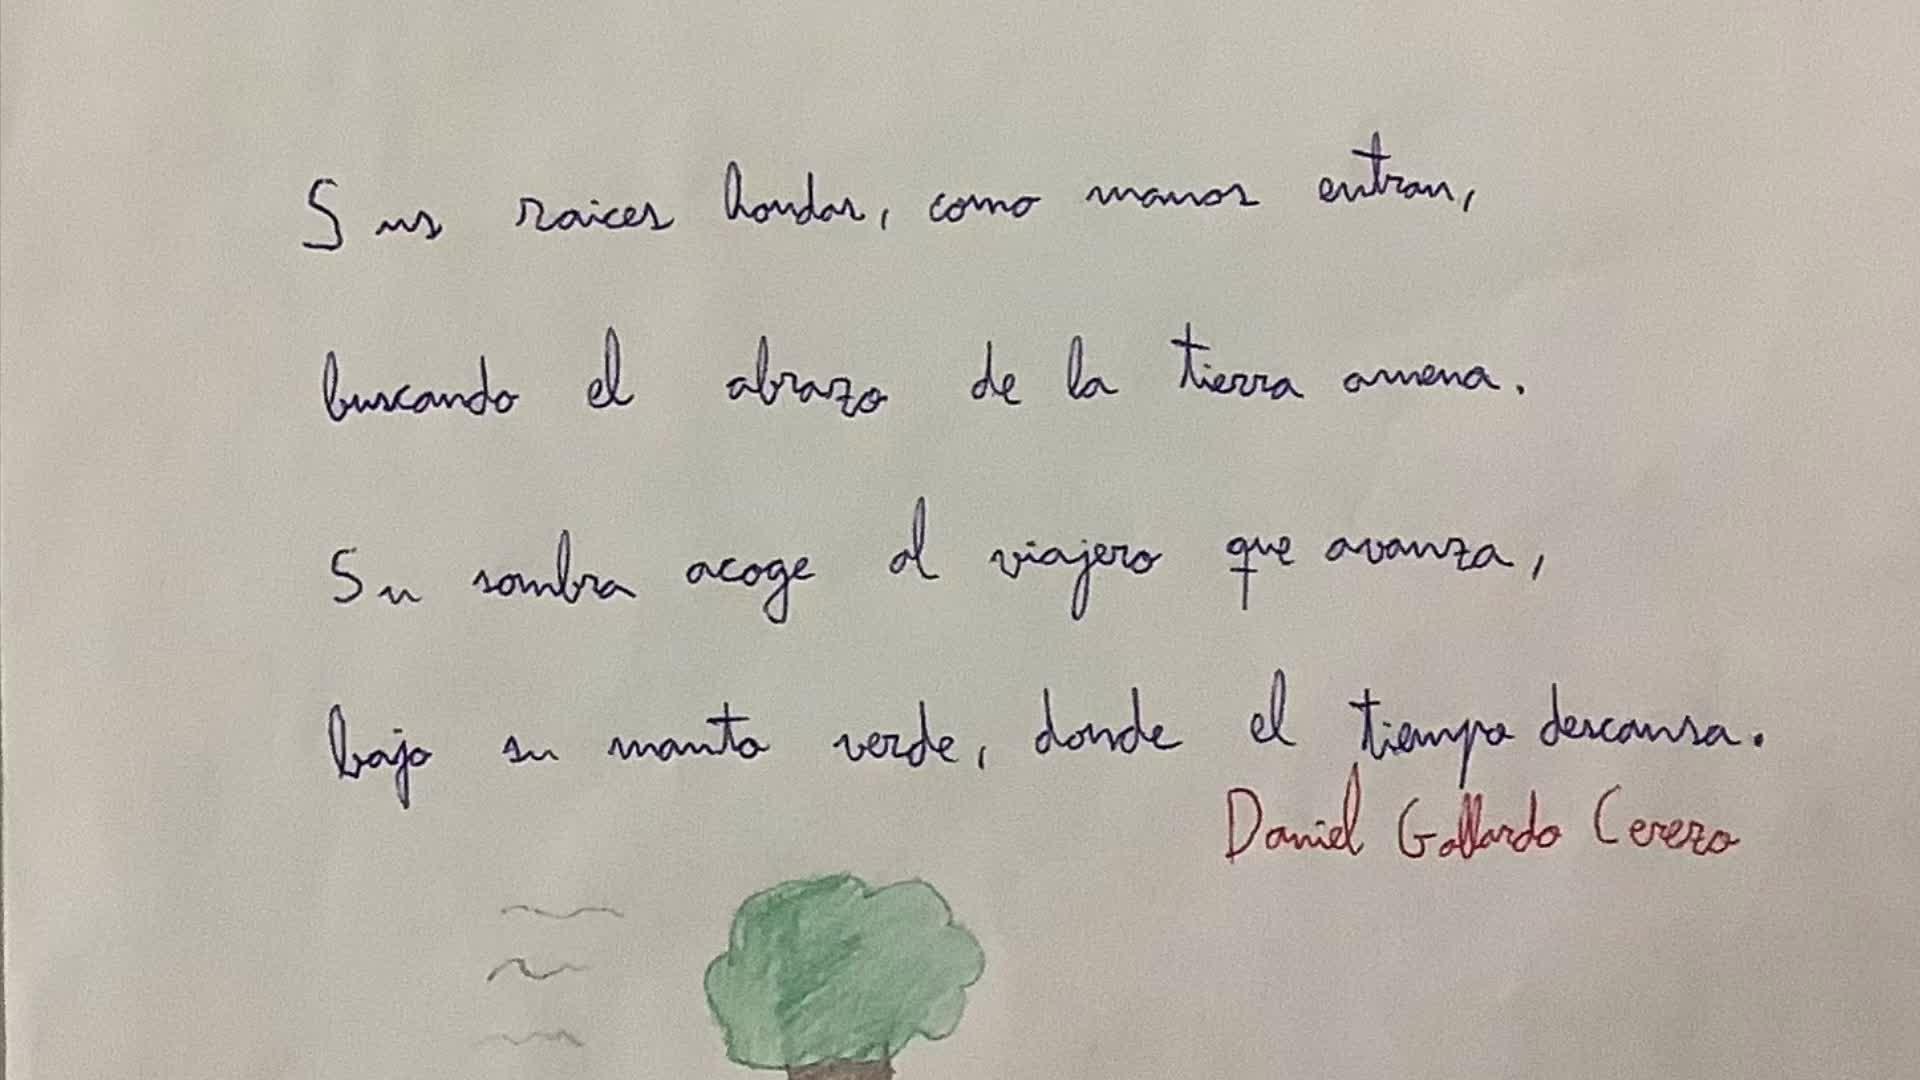 Sus raices hondas, como manos entran,
buscando el abrazo de la tierra amena.
Su sombra acoge al viajero que avanza,
bajo su manto verde, donde el tiempo descansa.
Daniel Gallardo Cerezo